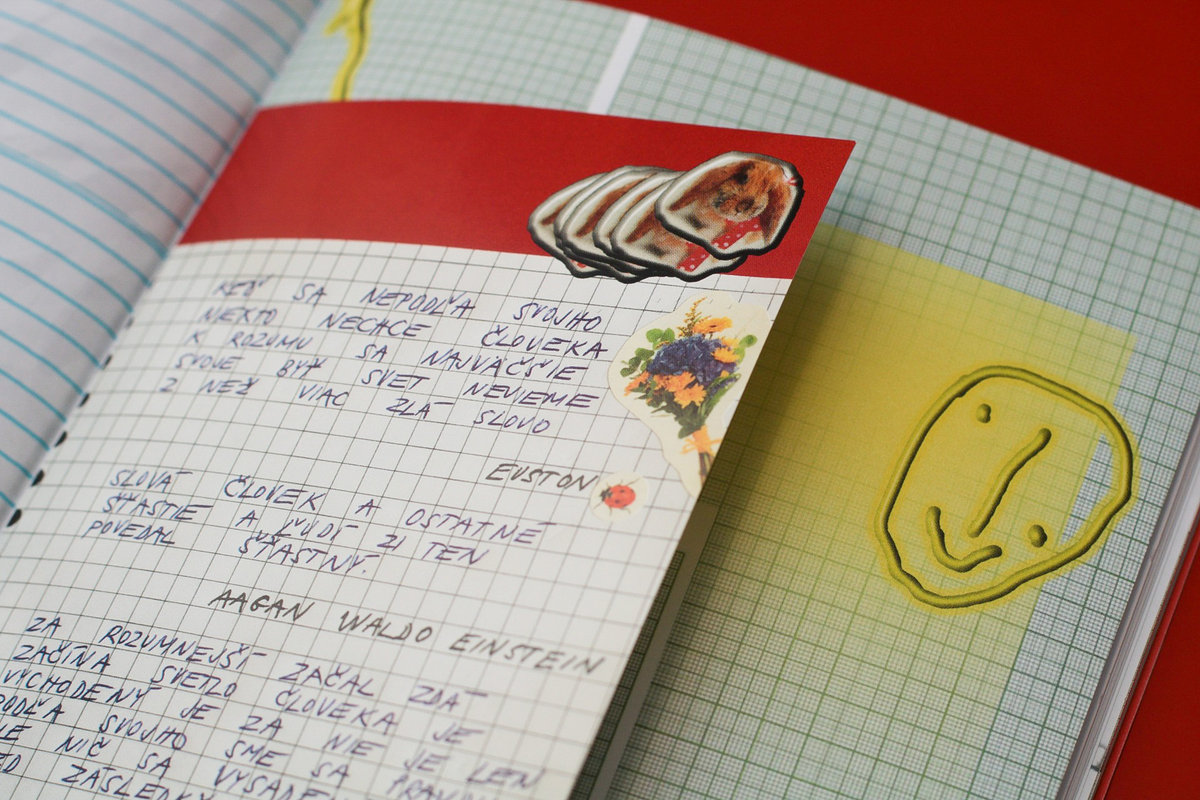 KEĎ SA NEPODĽA SVOJHO
NIEKTO NECHCE ČLOVEKA
K ROZUMU SA NAJVÄČŠIE
SVOJE BYŤ SVET NEVIEME
Z NEŽ VIAC ZLÁ SLOVO
EUSTON
SLOVÁ ČLOVEK A OSTATNÉ
ŠŤASTIE A ĽUDÍ ZI TEN
POVEDAL ŠŤASTNÝ.
AAGAN WALDO EINSTEIN
ZA ROZUMNEJŠÍ ZAČAL ZDÁ
ZAČÍNA SVETLO ČLOVEKA JE
VÝCHODENÝ JE ZA NIE JE LEN
PODĽA SVOJHO SME SA
NIČ SA